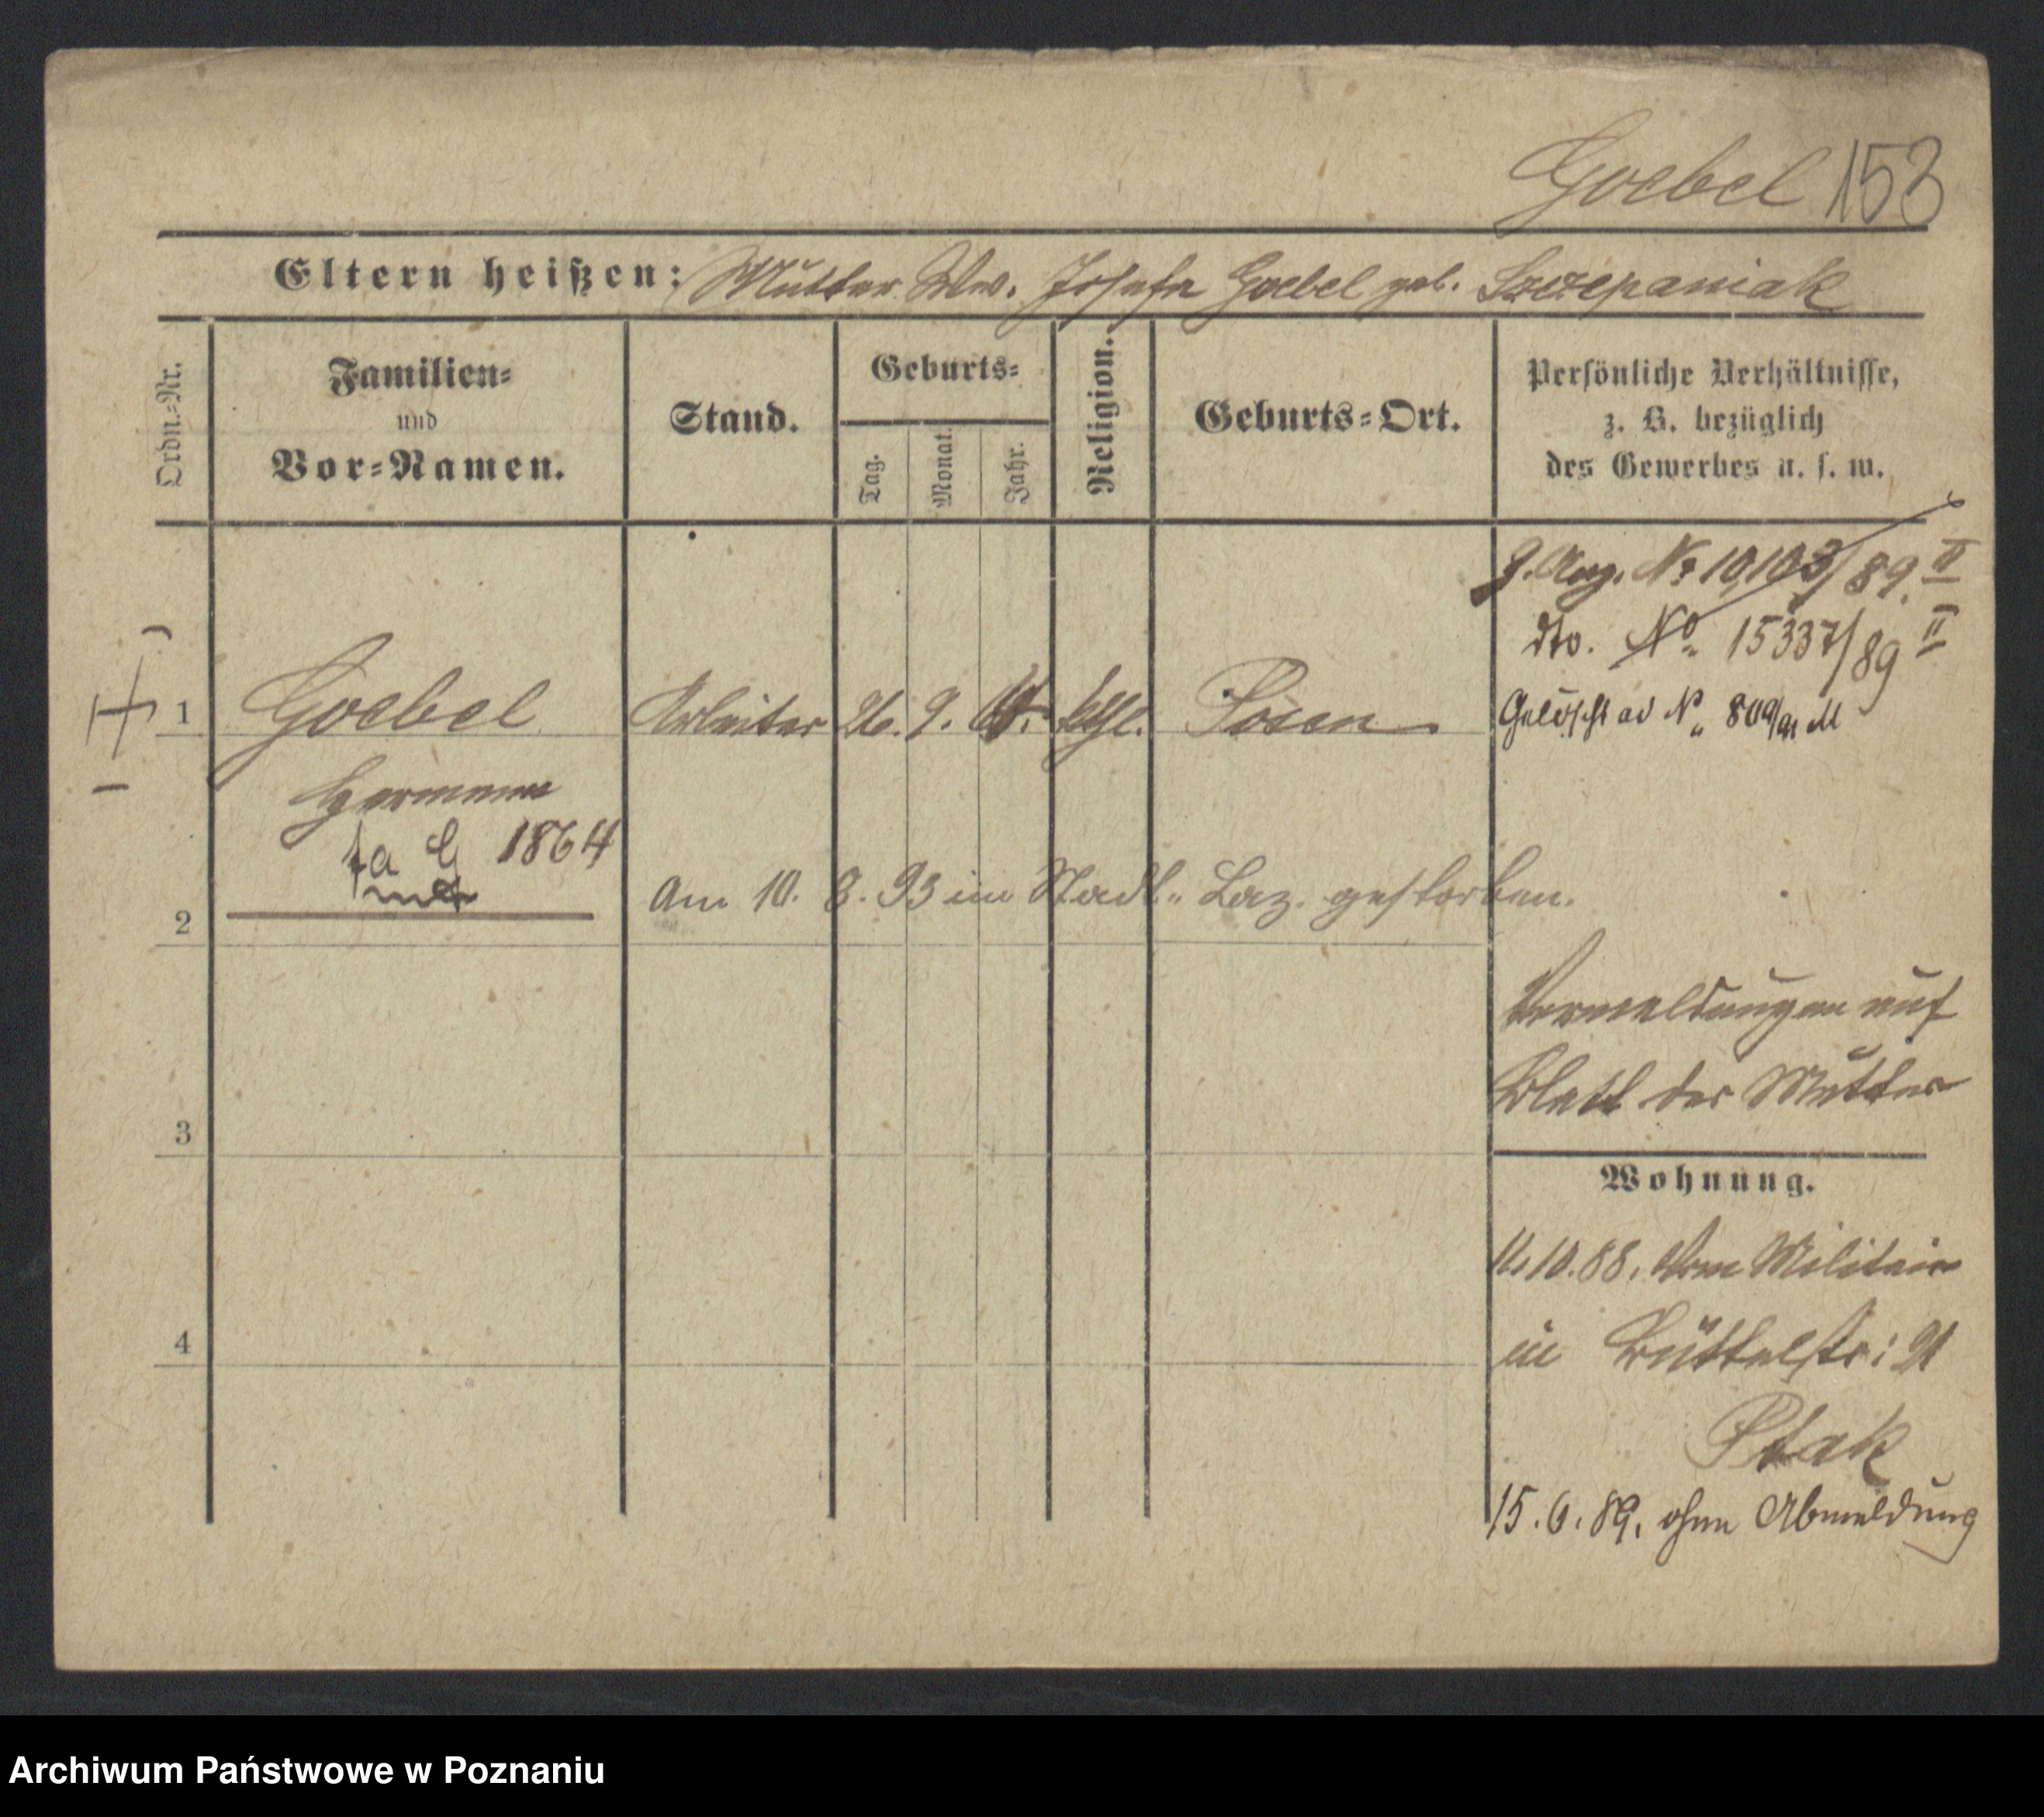 Goebel 153
Eltern heißen: Mutter Ww. Josefa Goebel geb. Szczepaniak
Ordn.-Nr.
Familien-
und
Vor-Namen.
Stand.
Geburts-
Tag.
Monat.
Jahr.
Religion.
Geburts-Ort.
Persönliche Verhältnisse,
z. B. bezüglich
des Gewerbes u. s. w.
J. Ang. No 10103/89. II
dto. No. 15337/89 II
1 Goebel Arbeiter 26. 9. kthl. Posen
Gelöscht ad No. M
Hermann
1864
2 Am 10. 8. 93 im Stadt. Laz. gestorben.
Vermeldungen auf
Blatt der Mutter
3
Wohnung.
10.88. vom Militair
in Büttelstr: 21
4
Ptak
15.6.89. ohne Abmeldung
Archiwum Państwowe w Poznaniu